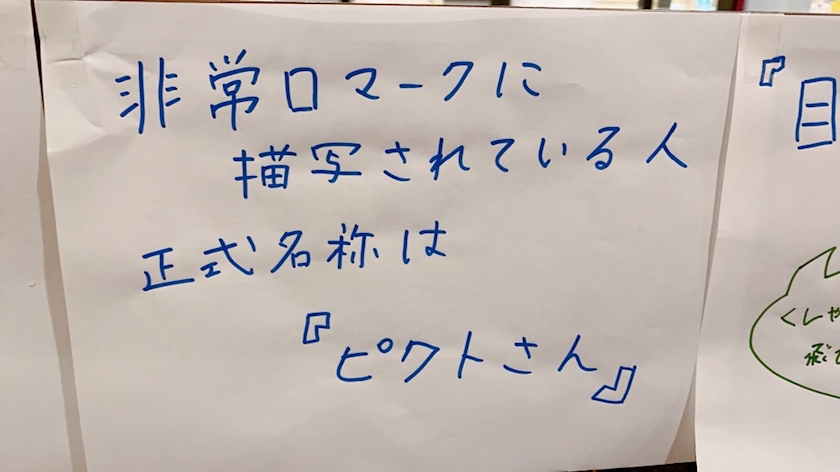 非常口マークに
描写されている人
正式名称は
『ピクトさん』
『目
くしゃ